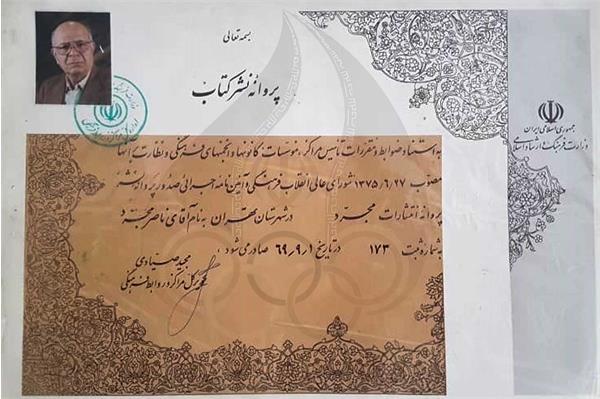 بسمه تعالی
پروانه نشر کتاب
جمهوری اسلامی ایران
وزارت فرهنگ و ارشاد اسلامی
به استناد ضوابط و مقررات تأسیس مراکز، مؤسسات کانونها و انجمنهای فرهنگی و نظارت بر آنها
مصوب ۱۳۷۵/۶/۲۷ شورای عالی انقلاب فرهنگی و آئین نامه اجرائی صدور پروانه نشر
پروانه انتشارات مجرد در شهرستان تهران به نام آقای ناصر مجرد
به شماره ثبت ۱۷۳ در تاریخ ۶۹٫۹٫۱ صادر می شود.
مجید صیادی
مدیر کل مراکز و روابط فرهنگی